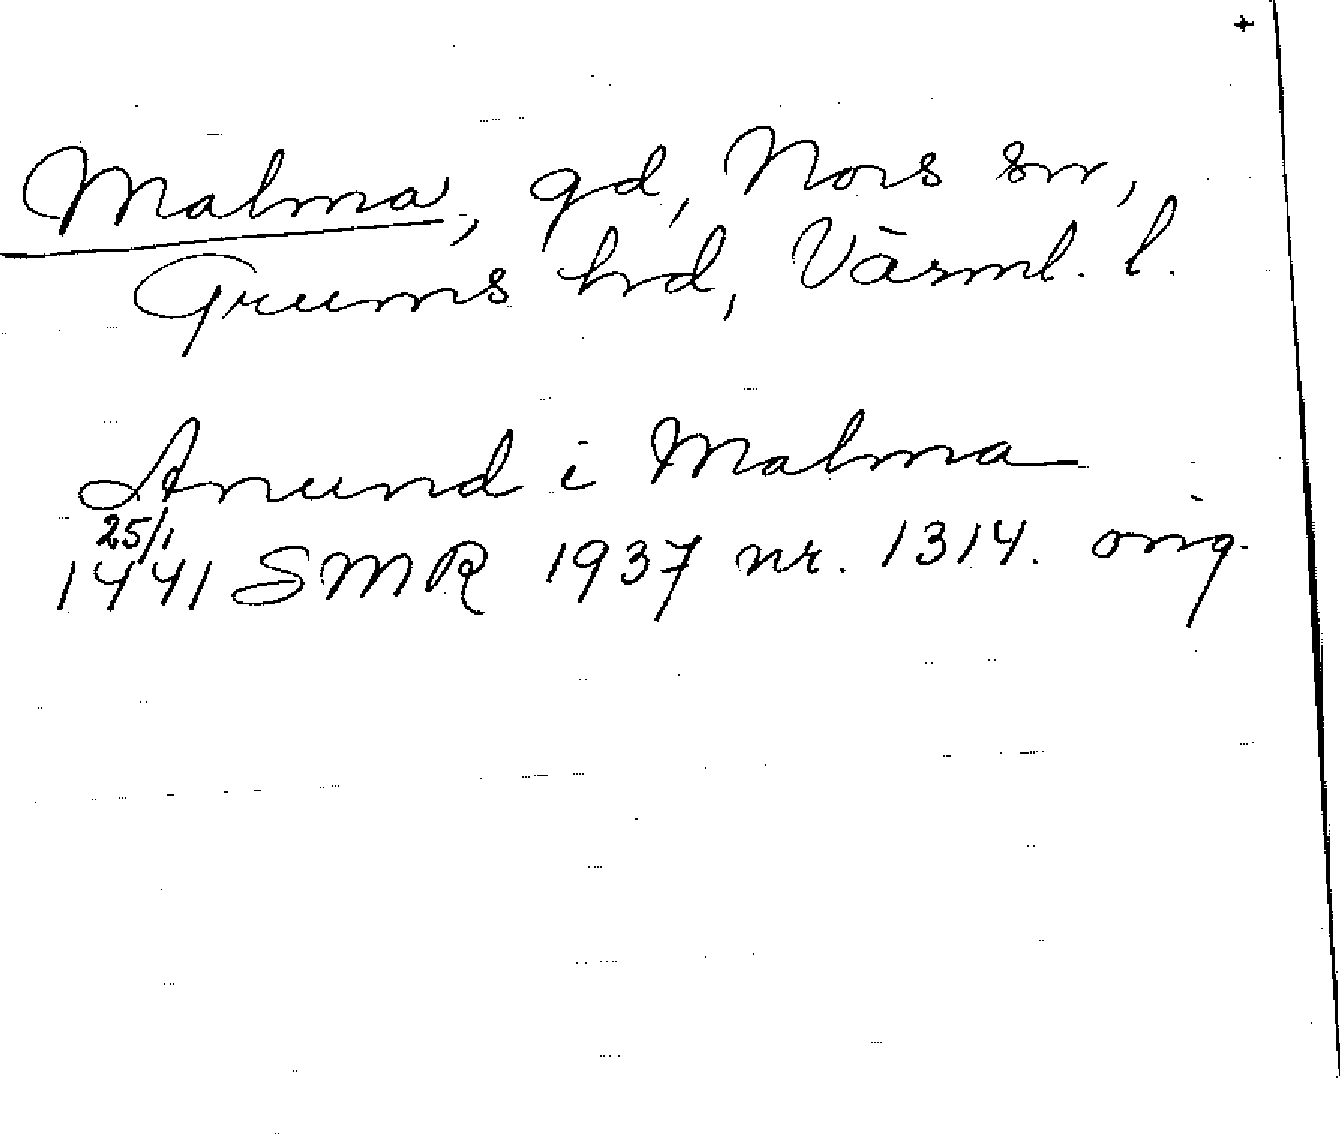 +
Malma, gd, Nors sn,
Grums hd, Värml. l.
Anund i Malma
25/1
1441 SMR 1937 nr. 1314. orig.